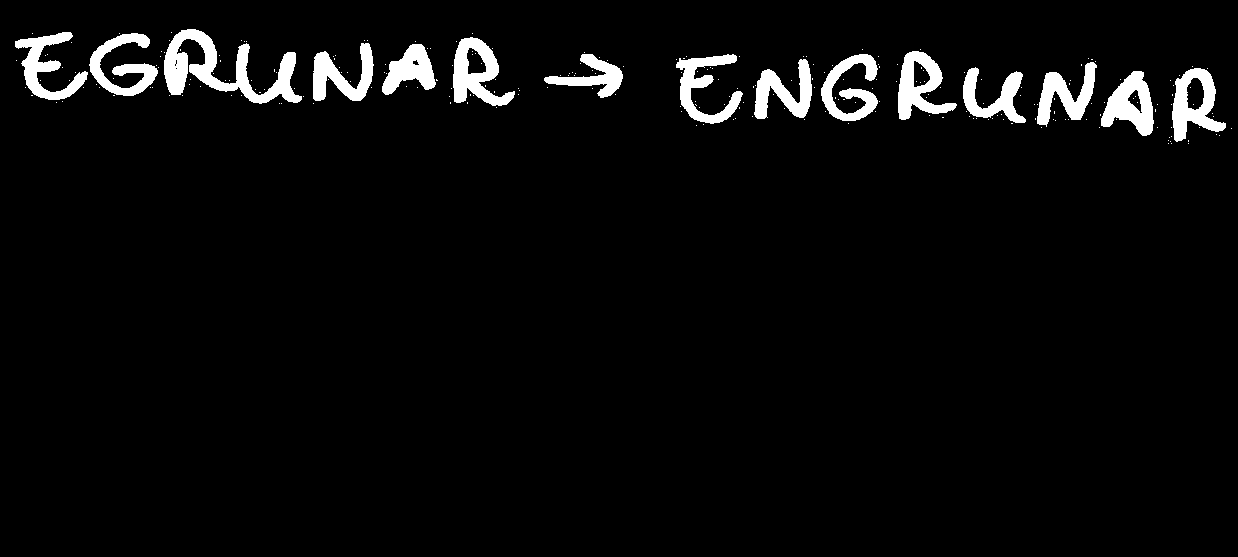 EGRUNAR → ENGRUNAR